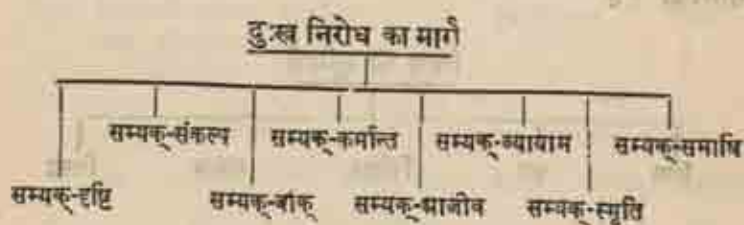 दुःख निरोध का मार्ग
सम्यक्-संकल्प सम्यक्-कर्मान्त सम्यक्-व्यायाम सम्यक्-समाधि
सम्यक्-दृष्टि सम्यक्-वाक् सम्यक्-आजीव सम्यक्-स्मृति